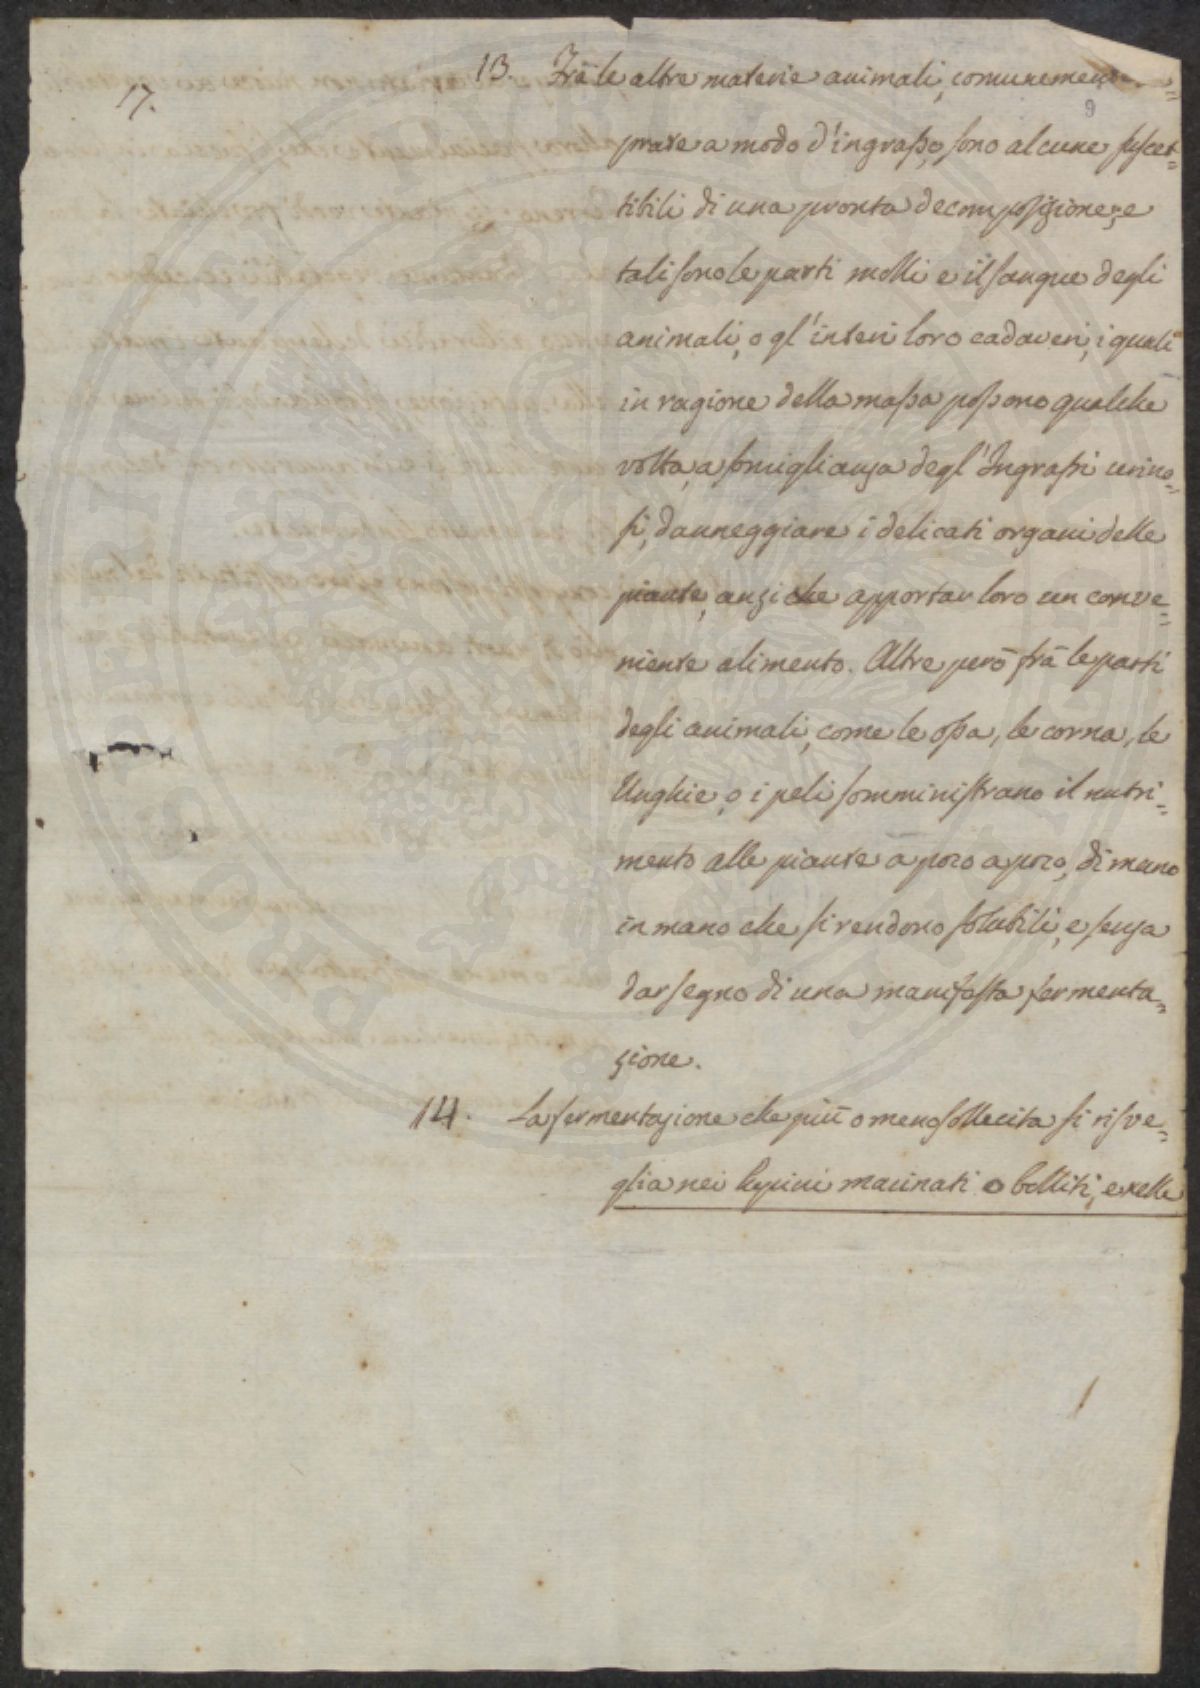 17.
13. Frà le altre materie animali, comunemen
9
prate a modo d'ingrasso, sono alcune suscet=
tibili di una pronta decomposizione; e
tali sono le parti molli e il sangue degli
animali, o gl'interi loro cadaveri, i quali
in ragione della massa possono qualche
volta, a somiglianza degl'Ingrassi urino=
si, danneggiare i delicati organi delle
piante, anzi che apportar loro un conve=
niente alimento. Altre però frà le parti
degli animali, come le ossa, le corna, le
Unghie, o i peli somministrano il nutri=
mento alle piante a poco a poco, di mano
in mano che si rendono solubili, e senza
dar segno di una manifesta fermenta=
zione.
14. La fermentazione che più o meno sollecita si risve=
glia nei lupini macinati o bolliti, e nelle
PROSPERITATI PUBLICAE AUGENDAE